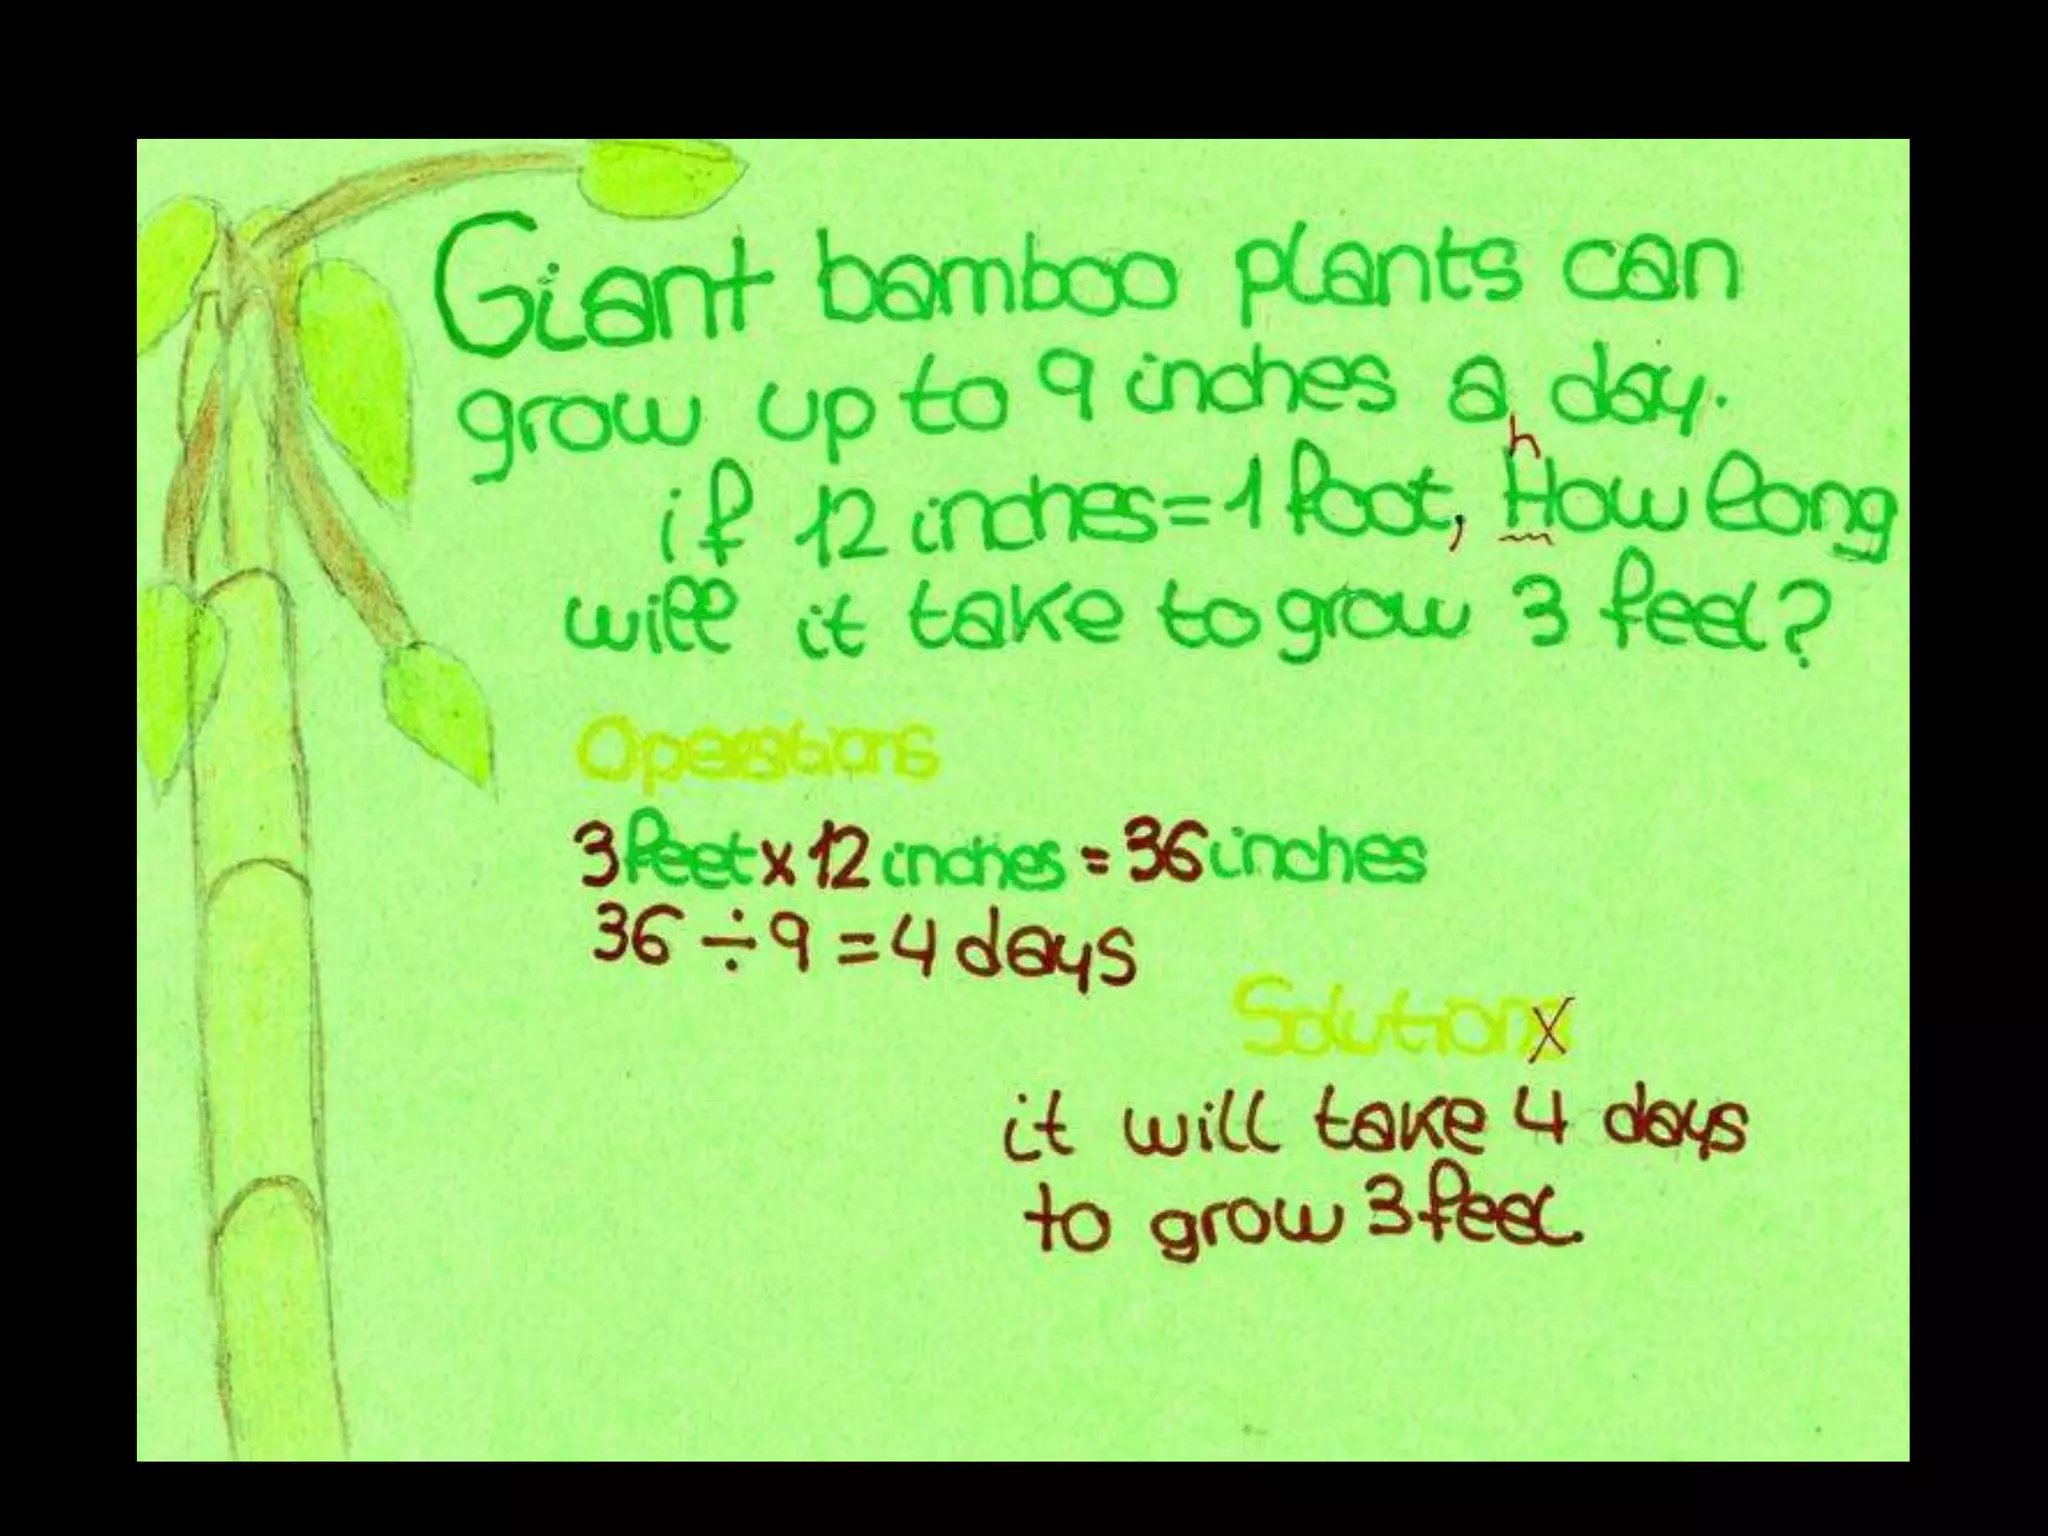 Giant bamboo plants can
grow up to 9 inches a day.
h
if 12 inches=1 foot, How long
will it take to grow 3 feet?
Operations
3 feet x 12 inches = 36 inches
36 ÷ 9 = 4 days
Solutions
it will take 4 days
to grow 3 feet.